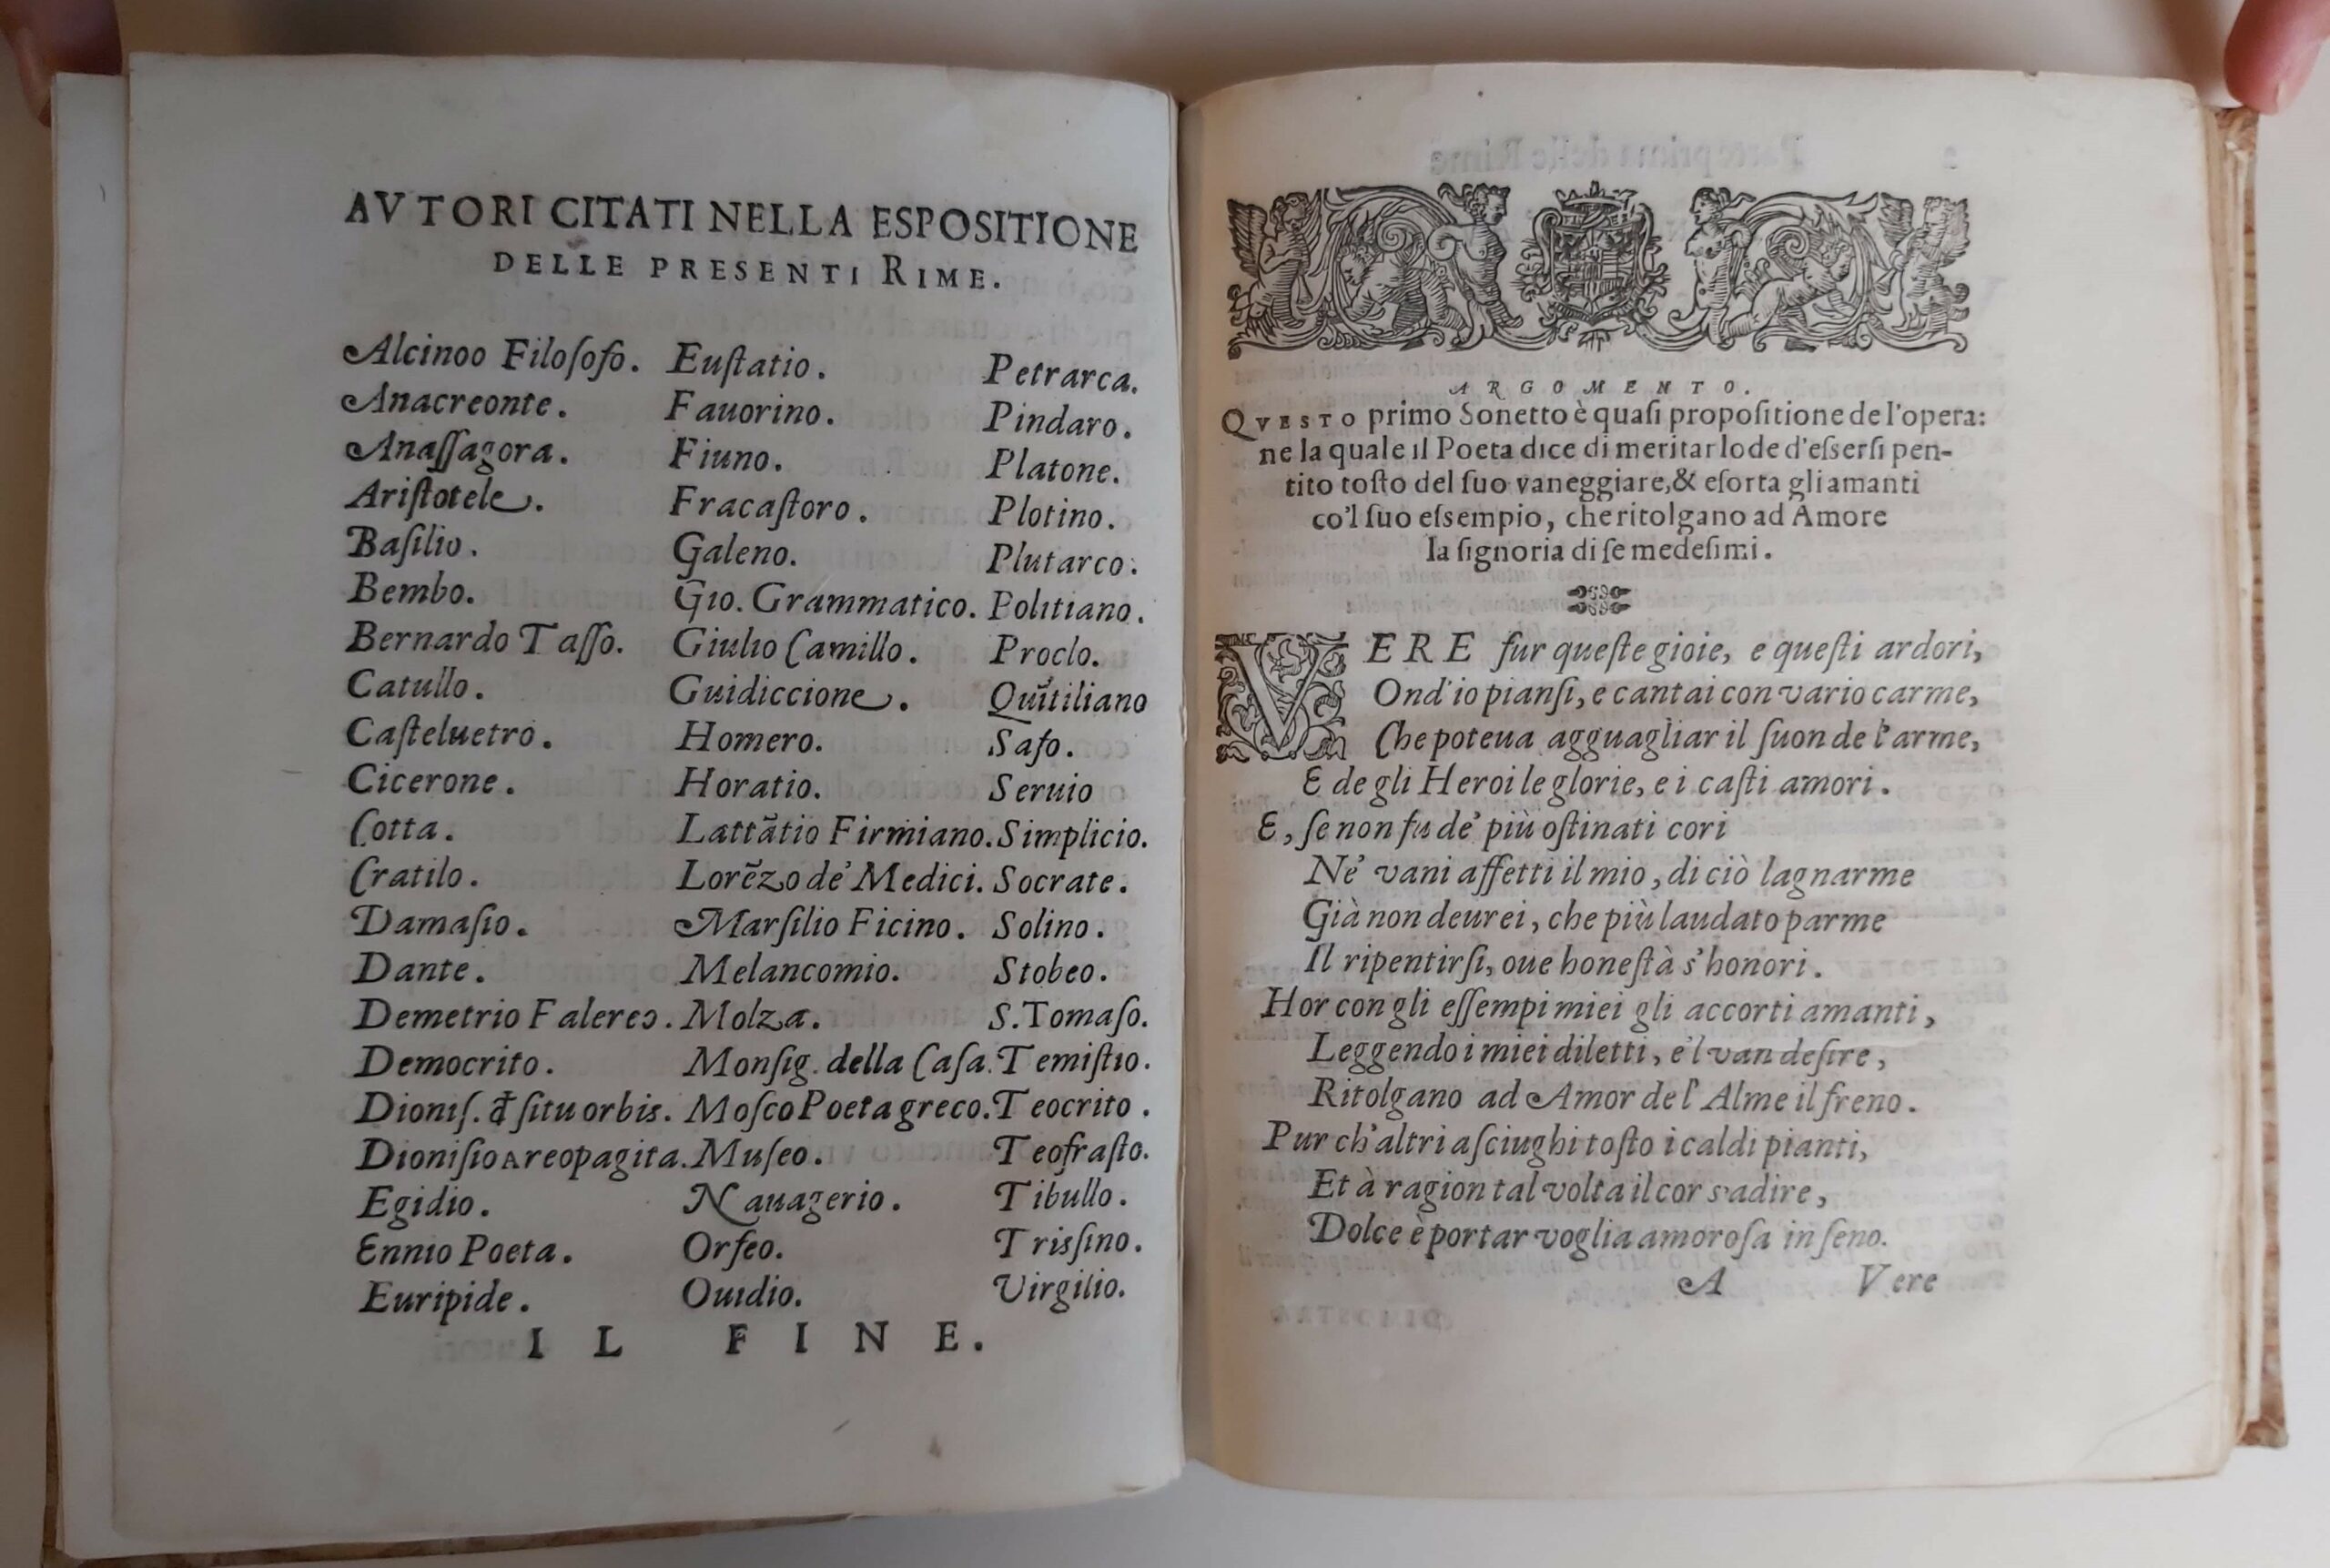 AVTORI CITATI NELLA ESPOSITIONE
DELLE PRESENTI RIME.
Alcinoo Filoſofo.
Anacreonte.
Anaſſagora.
Ariſtotele.
Baſilio.
Bembo.
Bernardo Taſſo.
Catullo.
Caſteluetro.
Cicerone.
Cotta.
Cratilo.
Damaſio.
Dante.
Demetrio Falereo.
Democrito.
Dioniſ. đ ſitu orbis.
Dioniſio Areopagita.
Egidio.
Ennio Poeta.
Euripide.
Euſtatio.
Fauorino.
Fiuno.
Fracaſtoro.
Galeno.
Gio. Grammatico.
Giulio Camillo.
Guidiccione.
Homero.
Horatio.
Lattãtio Firmiano.
Lorẽzo de' Medici.
Marſilio Ficino.
Melancomio.
Molza.
Monſig. della Caſa.
Moſco Poeta greco.
Muſeo.
Nauagerio.
Orfeo.
Ouidio.
Petrarca.
Pindaro.
Platone.
Plotino.
Plutarco.
Politiano.
Proclo.
Quĩtiliano
Safo.
Seruio
Simplicio.
Socrate.
Solino.
Stobeo.
S. Tomaſo.
Temiſtio.
Teocrito.
Teofraſto.
Tibullo.
Trisſino.
Virgilio.
IL FINE.
ARGOMENTO.
QVESTO primo Sonetto è quaſi propoſitione de l'opera:
ne la quale il Poeta dice di meritar lode d'eſserſi pen-
tito toſto del ſuo vaneggiare, & eſorta gli amanti
co'l ſuo eſsempio, che ritolgano ad Amore
la ſignoria di ſe medeſimi.
VERE fur queſte gioie, e queſti ardori,
Ond' io pianſi, e cantai con vario carme,
Che poteua agguagliar il ſuon de l'arme,
E de gli Heroi le glorie, e i caſti amori.
E, ſe non fu de' più oſtinati cori
Ne' vani affetti il mio, di ciò lagnarme
Già non deurei, che più laudato parme
Il ripentirſi, oue honeſtà s'honori.
Hor con gli eſſempi miei gli accorti amanti,
Leggendo i miei diletti, e'l van deſire,
Ritolgano ad Amor de l' Alme il freno.
Pur ch'altri aſciughi toſto i caldi pianti,
Et à ragion tal volta il cor s'adire,
Dolce è portar voglia amoroſa in ſeno.
A Vere